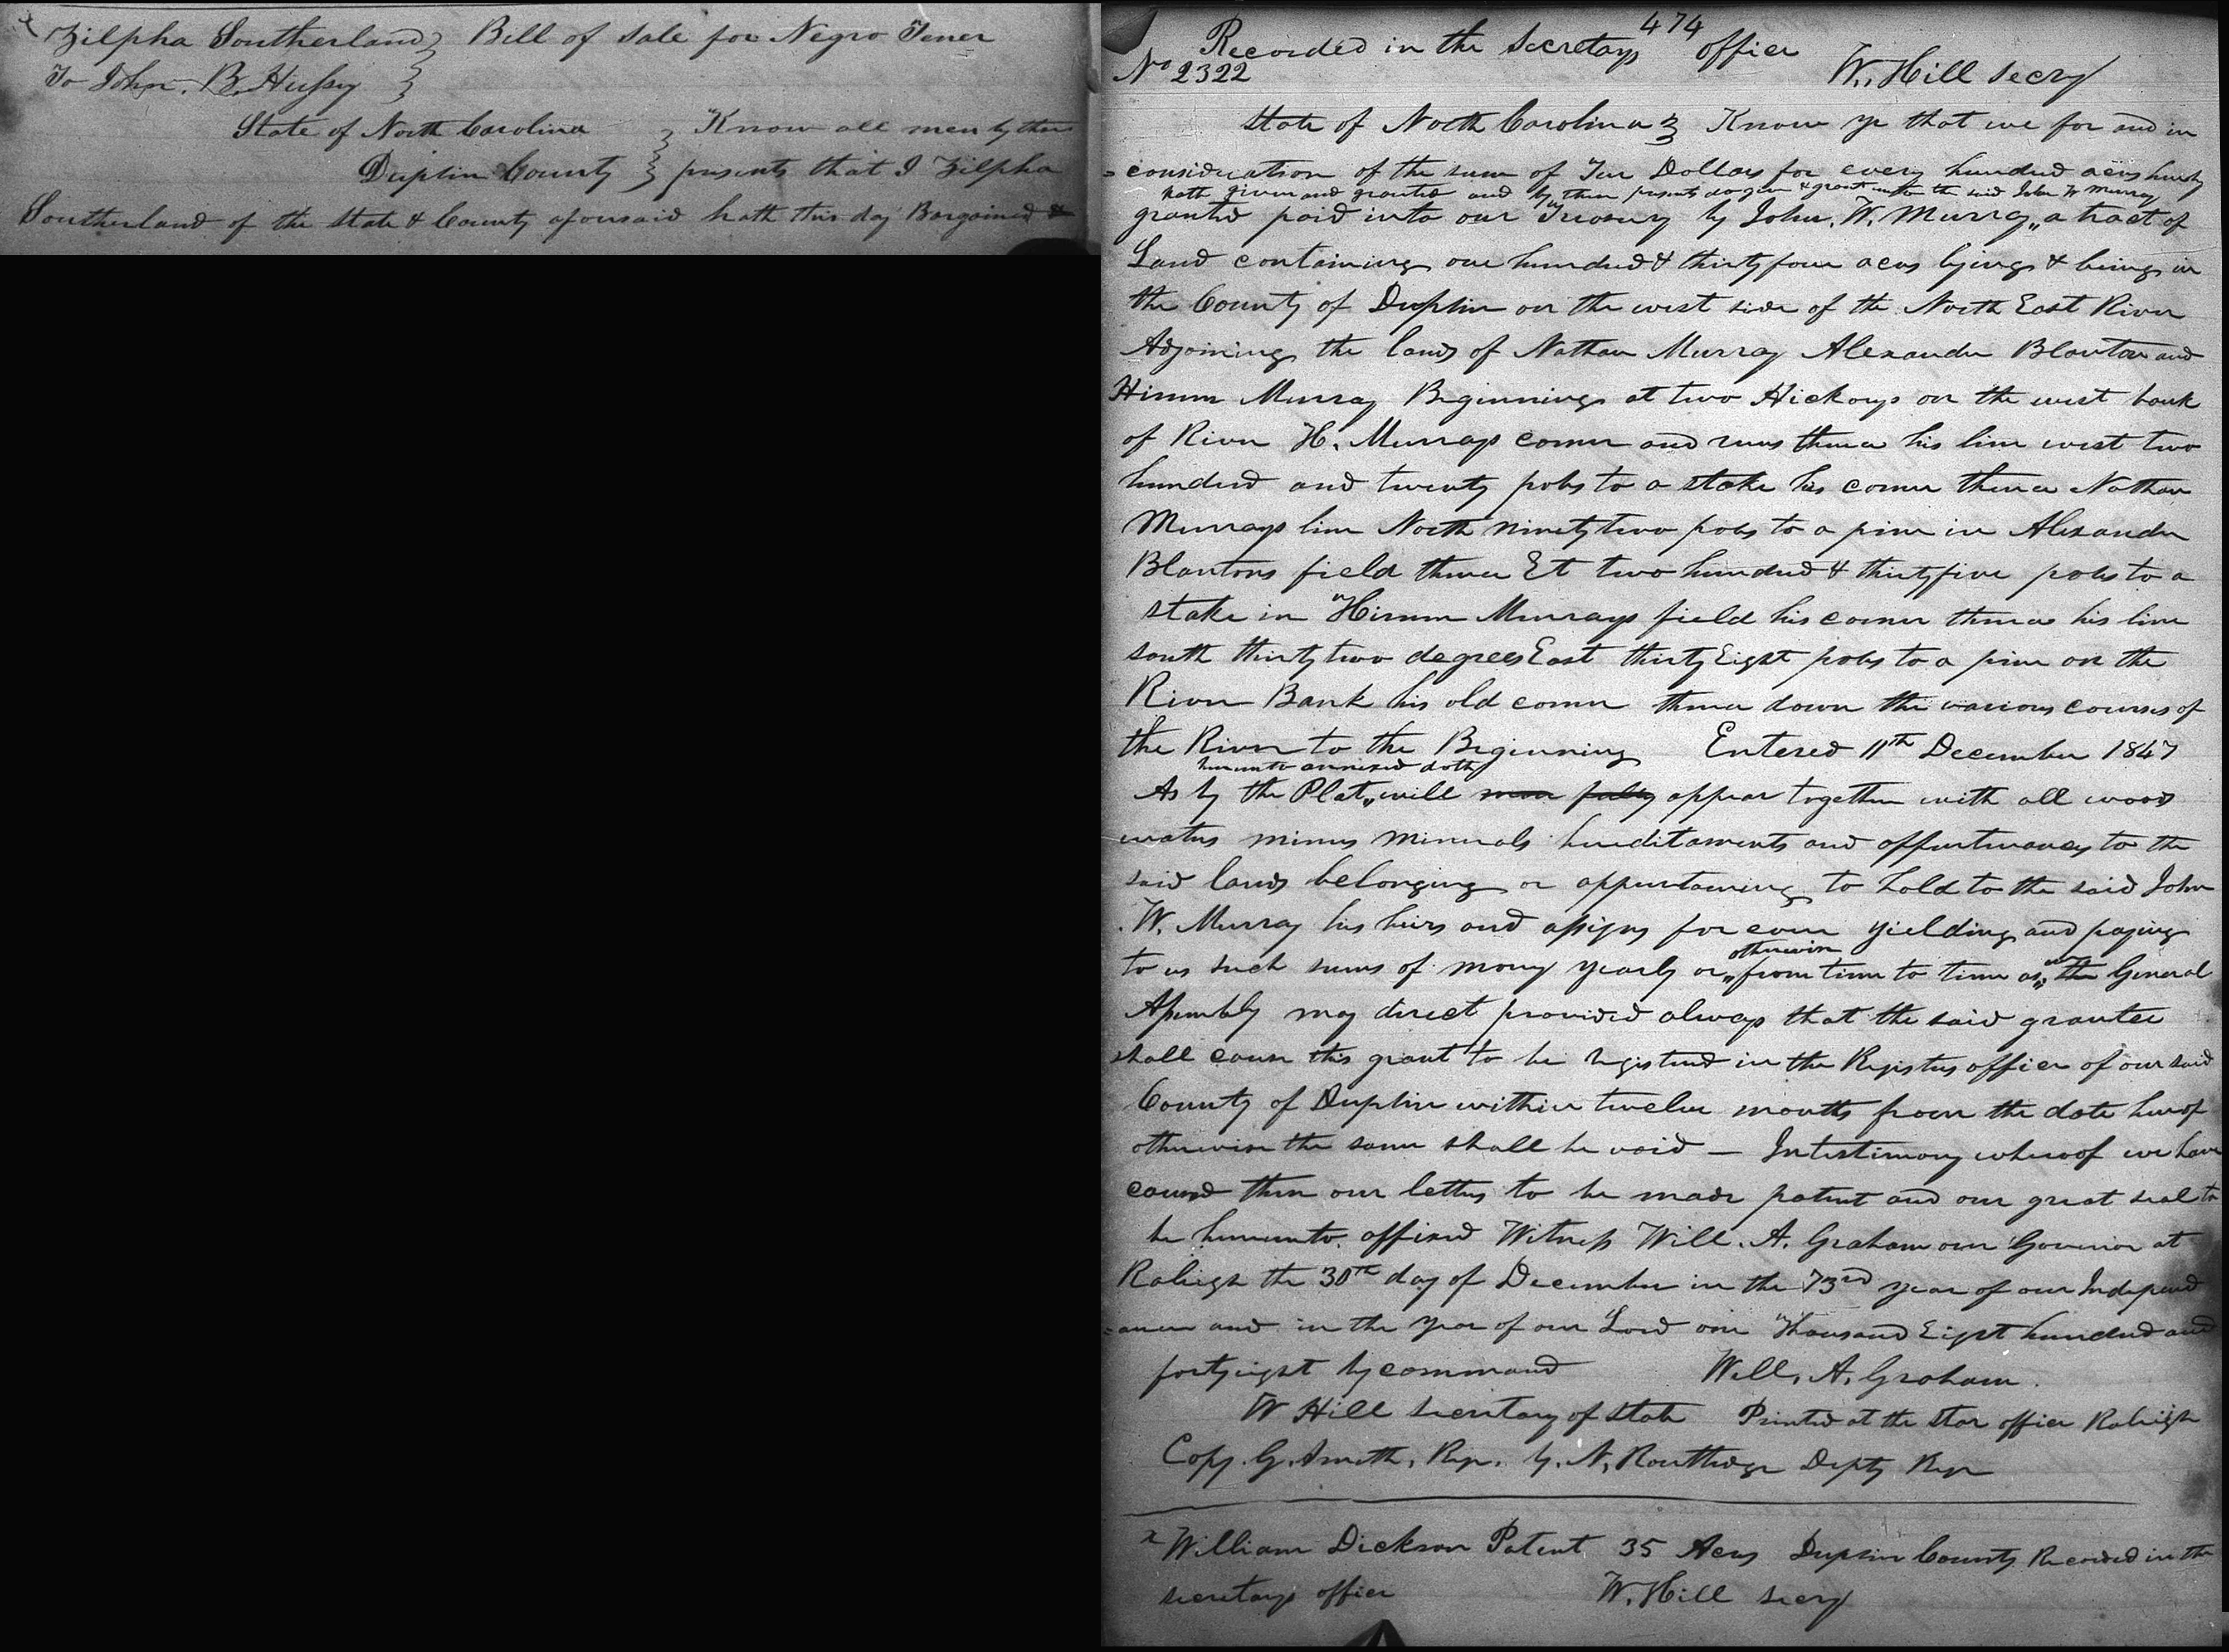 Zilpha Southerland } Bill of Sale for Negro Tener
To John. B. Hussey }
State of North Carolina } Know all men by these
Duplin County } presents that I Zilpha
Southerland of the State & County aforesaid hath this day Bargained &
474
Recorded in the Secretarys office
No 2322 W. Hill Secry
State of North Carolina } Know ye that we for and in
=consideration of the sum of Ten Dollars for every hundred acres hereby
hath given and granted and by these presents do give & grant unto the said John W Murray
granted paid into our Treasury by John. W. Murray,, a tract of
Land containing one hundred & thirty four acres lying & being in
the County of Duplin on the west side of the North East River
Adjoining the lands of Nathan Murray Alexander Blanton and
Hiram Murray Beginning at two Hickorys on the west bank
of River H. Murrays corner and runs thence his line west two
hundred and twenty poles to a stake his corner thence Nathan
Murrays line North ninety two poles to a pine in Alexander
Blantons field thence Et two hundred & thirty five poles to a
stake in Hiram Murrays field his corner thence his line
south thirty two degrees East thirty Eight poles to a pine on the
River Bank his old corner thence down the various courses of
the River to the Beginning Entered 11th December 1847
hereunto annexed doth
As by the Plat,, will more fully appear together with all woods
waters mines minerals hereditaments and appurtenances to the
said lands belonging or appurtaining to hold to the said John
.W. Murray his heirs and assigns for ever yielding and paying
otherwise
to us such sums of money yearly or,, from time to time as,, our the General
Assembly may direct provided always that the said grantee
shall cause this grant to be registered in the Registers office of our said
County of Duplin within twelve months from the date hereof
otherwise the same shall be void — In testimony whereof we have
caused these our letters to be made patent and our great seal to
be hereunto affixed Witness Will. A. Graham our Governor at
Raleigh the 30th day of December in the 73rd year of our Independ
=ance and in the year of our Lord one Thousand Eight hundred and
forty eight by command Will. A. Graham.
W Hill Secretary of State Printed at the Star office Raleigh
Copy. G. Smith, Regr. by. N, Routledge Depty Regr
x William Dickson Patent 35 Acres Duplin County Recorded in the
secretarys office W. Hill Secry